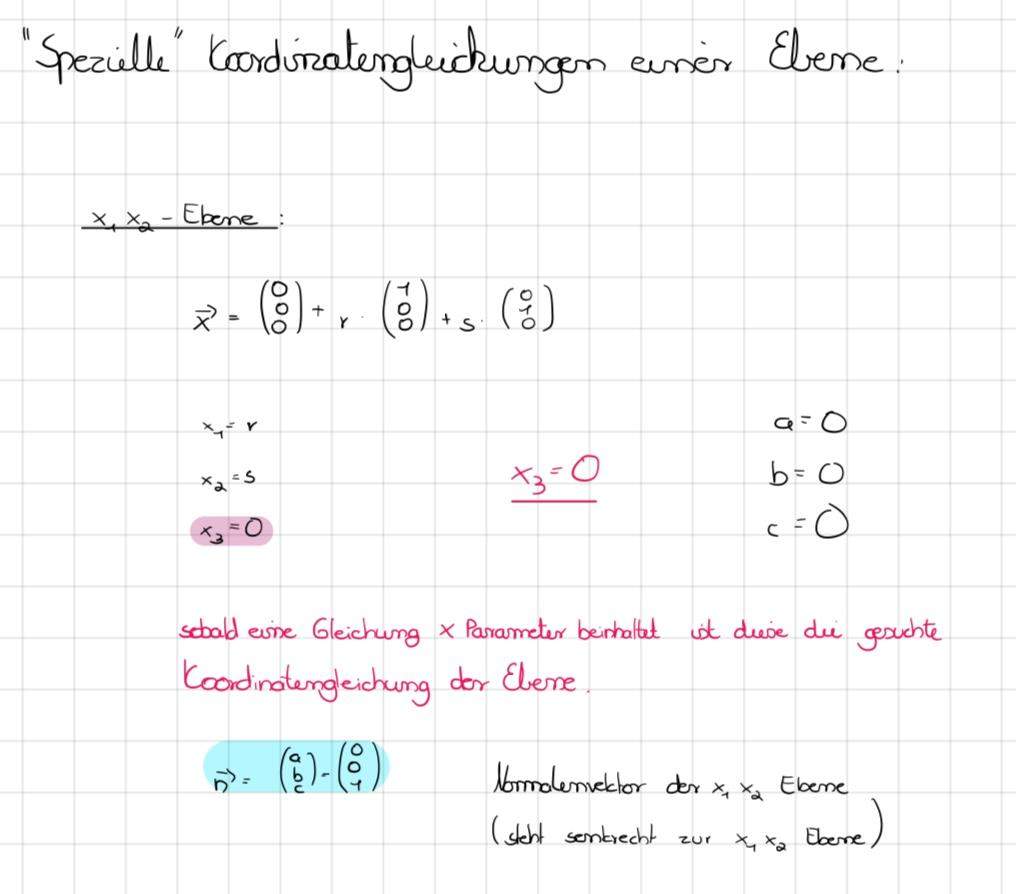 "Spezielle" Koordinatengleichungen einer Ebene:
x₁ x₂ - Ebene :
x⃗ = (0 0 0) + r · (1 0 0) + s · (0 1 0)
x₁ = r
a = 0
x₂ = s
x₃ = 0
b = 0
x₃ = 0
c = 0
sobald eine Gleichung x Parameter beinhaltet ist diese die gesuchte
Koordinatengleichung der Ebene.
n⃗ = (a b c) = (0 0 1)
Normalenvektor der x₁ x₂ Ebene
(steht senkrecht zur x₁ x₂ Ebene)